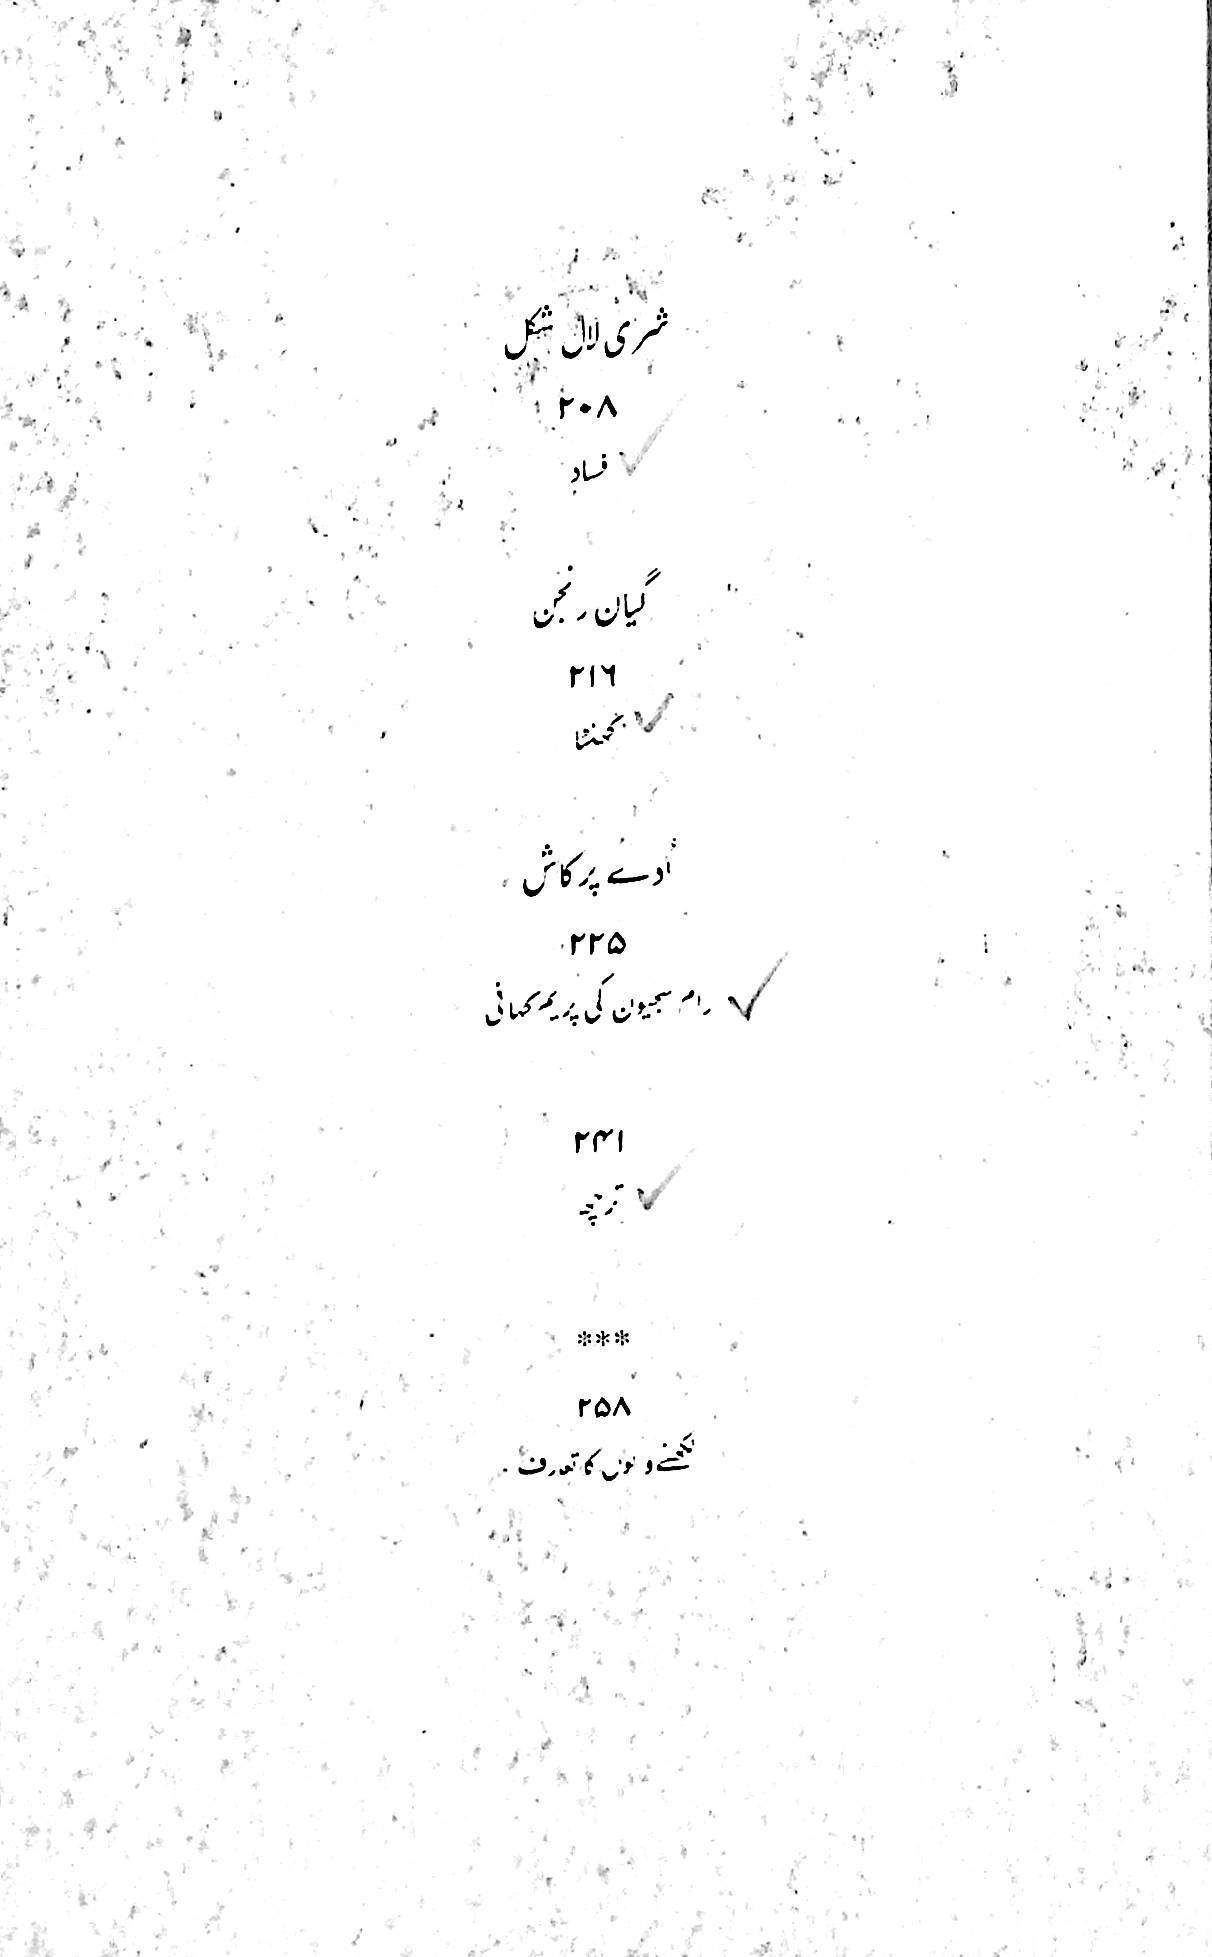 شری لال شکل
۲۰۸
فساد
گیان رنجن
۲۱۶
گھنٹا
اُدے پرکاش
۲۲۵
رام سجیون کی پریم کہانی
۲۴۱
ترچھ
***
۲۵۸
لکھنے والوں کا تعارف